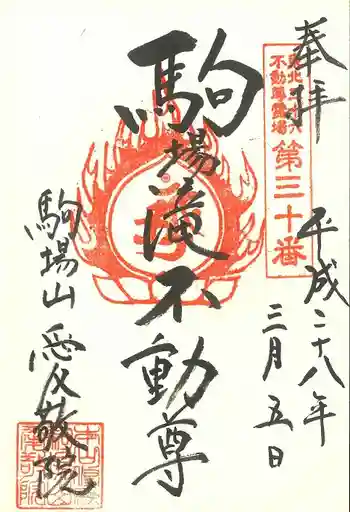 奉拝
東北三十六
不動尊霊場
第三十番
平成二十八年
三月五日
駒場滝不動尊
駒場山 愛敬院